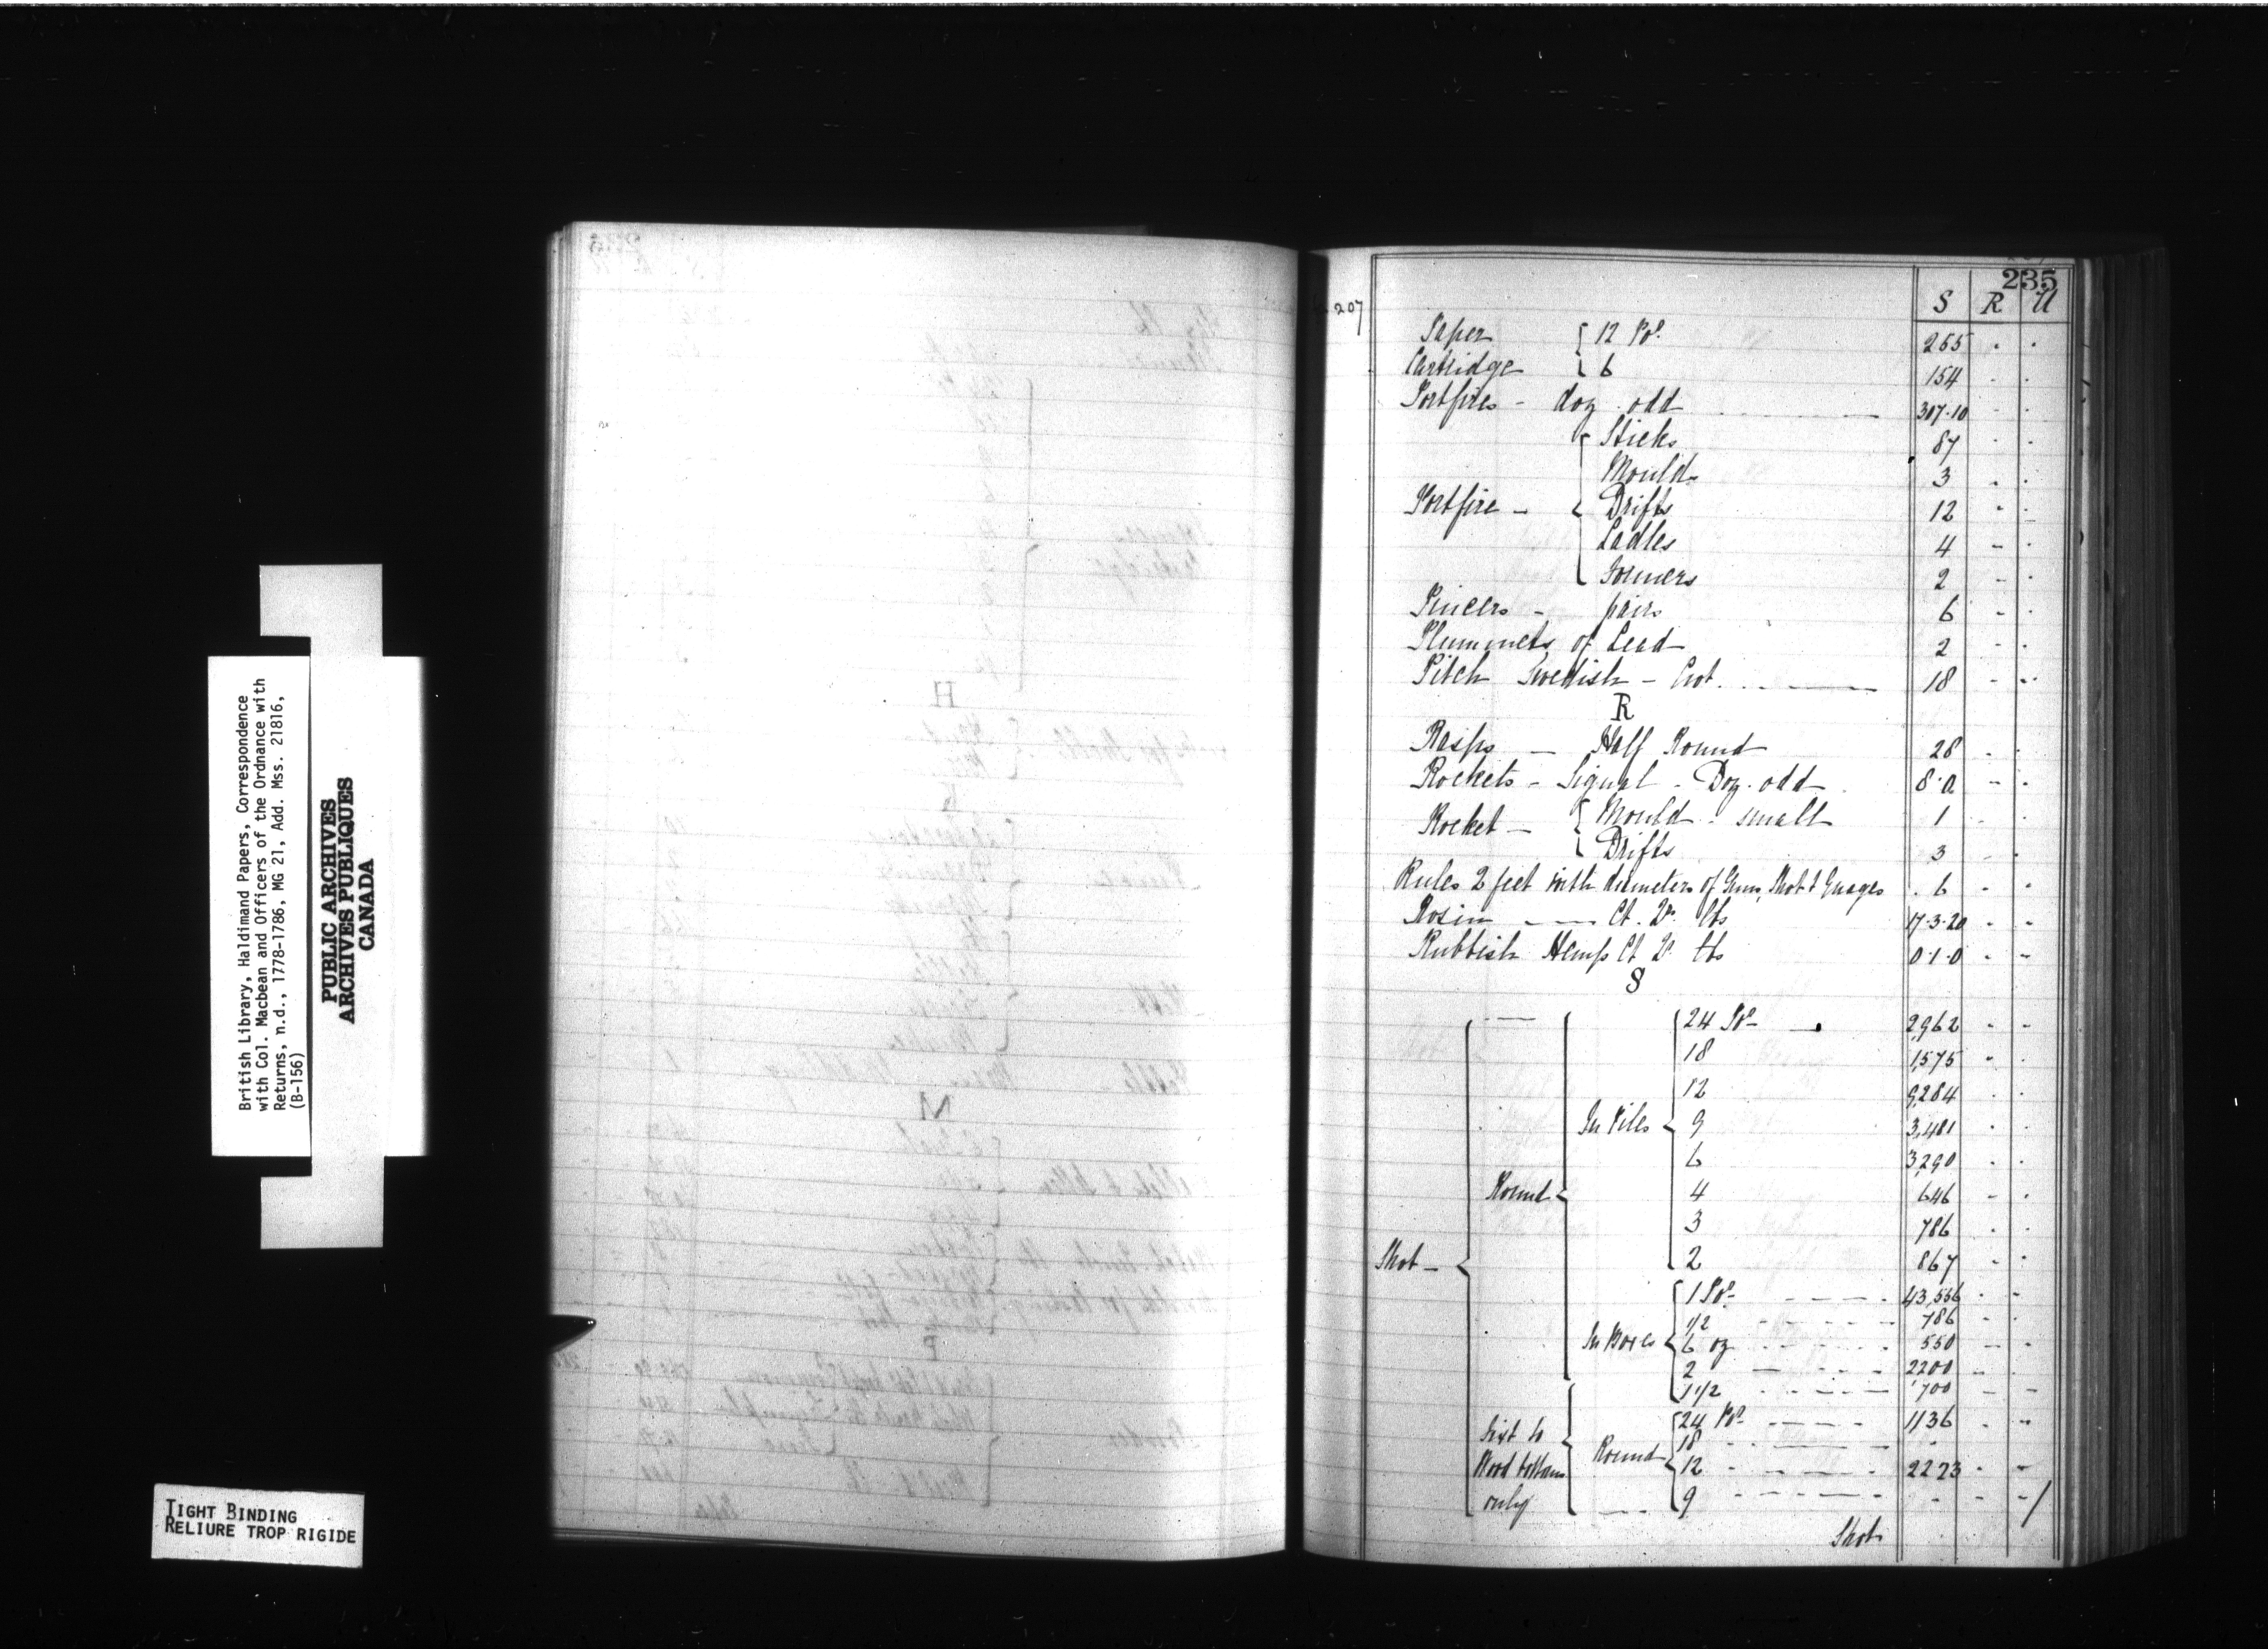 British Library, Haldimand Papers, Correspondence
with Col. Macbean and Officers of the Ordnance with
Returns, n.d., 1778-1786, MG 21, Add. Mss. 21816,
(B-156)
PUBLIC ARCHIVES
ARCHIVES PUBLIQUES
CANADA
TIGHT BINDING
RELIURE TROP RIGIDE
235
207
S R U
Paper { 12 Pr. 265 - -
Cartridge { 6 154 - -
Portfires - doz. odd 307.10 - -
Sticks 87 - -
Moulds 3 - -
Portfire - { Drifts 12 - -
Ladles 4 - -
Formers 2 - -
Pincers - pairs 6 - -
Plummets of Lead 2 - -
Pitch Swedish - Cwt. 18 - -
R
Rasps - Half Round 28 - -
Rockets - Signal - Doz. odd 8.0 - -
Rocket - { Mould - small 1 - -
Drifts 3 - -
Rules 2 feet with diameters of Guns, Shot & Guages 6 - -
Rosin - Ct. Qr. lbs 17.3.20 - -
Rubbish Hemp Ct Qr lbs 0.1.0 - -
S
24 Pr - 2,962 - -
18 1,575 - -
12 9,284 - -
In Piles { 9 3,481 - -
6 3,290 - -
Round { 4 646 - -
3 786 - -
Shot - { 2 867 - -
1 Pr - 43,556 - -
1/2 786 - -
In Boxes { 6 oz 550 - -
2 2200 - -
1 1/2 700 - -
24 Pr - 1136 - -
Fixt to 18 - -
Wood bottoms { Round { 12 2223 - -
only 9 - - -
Shot